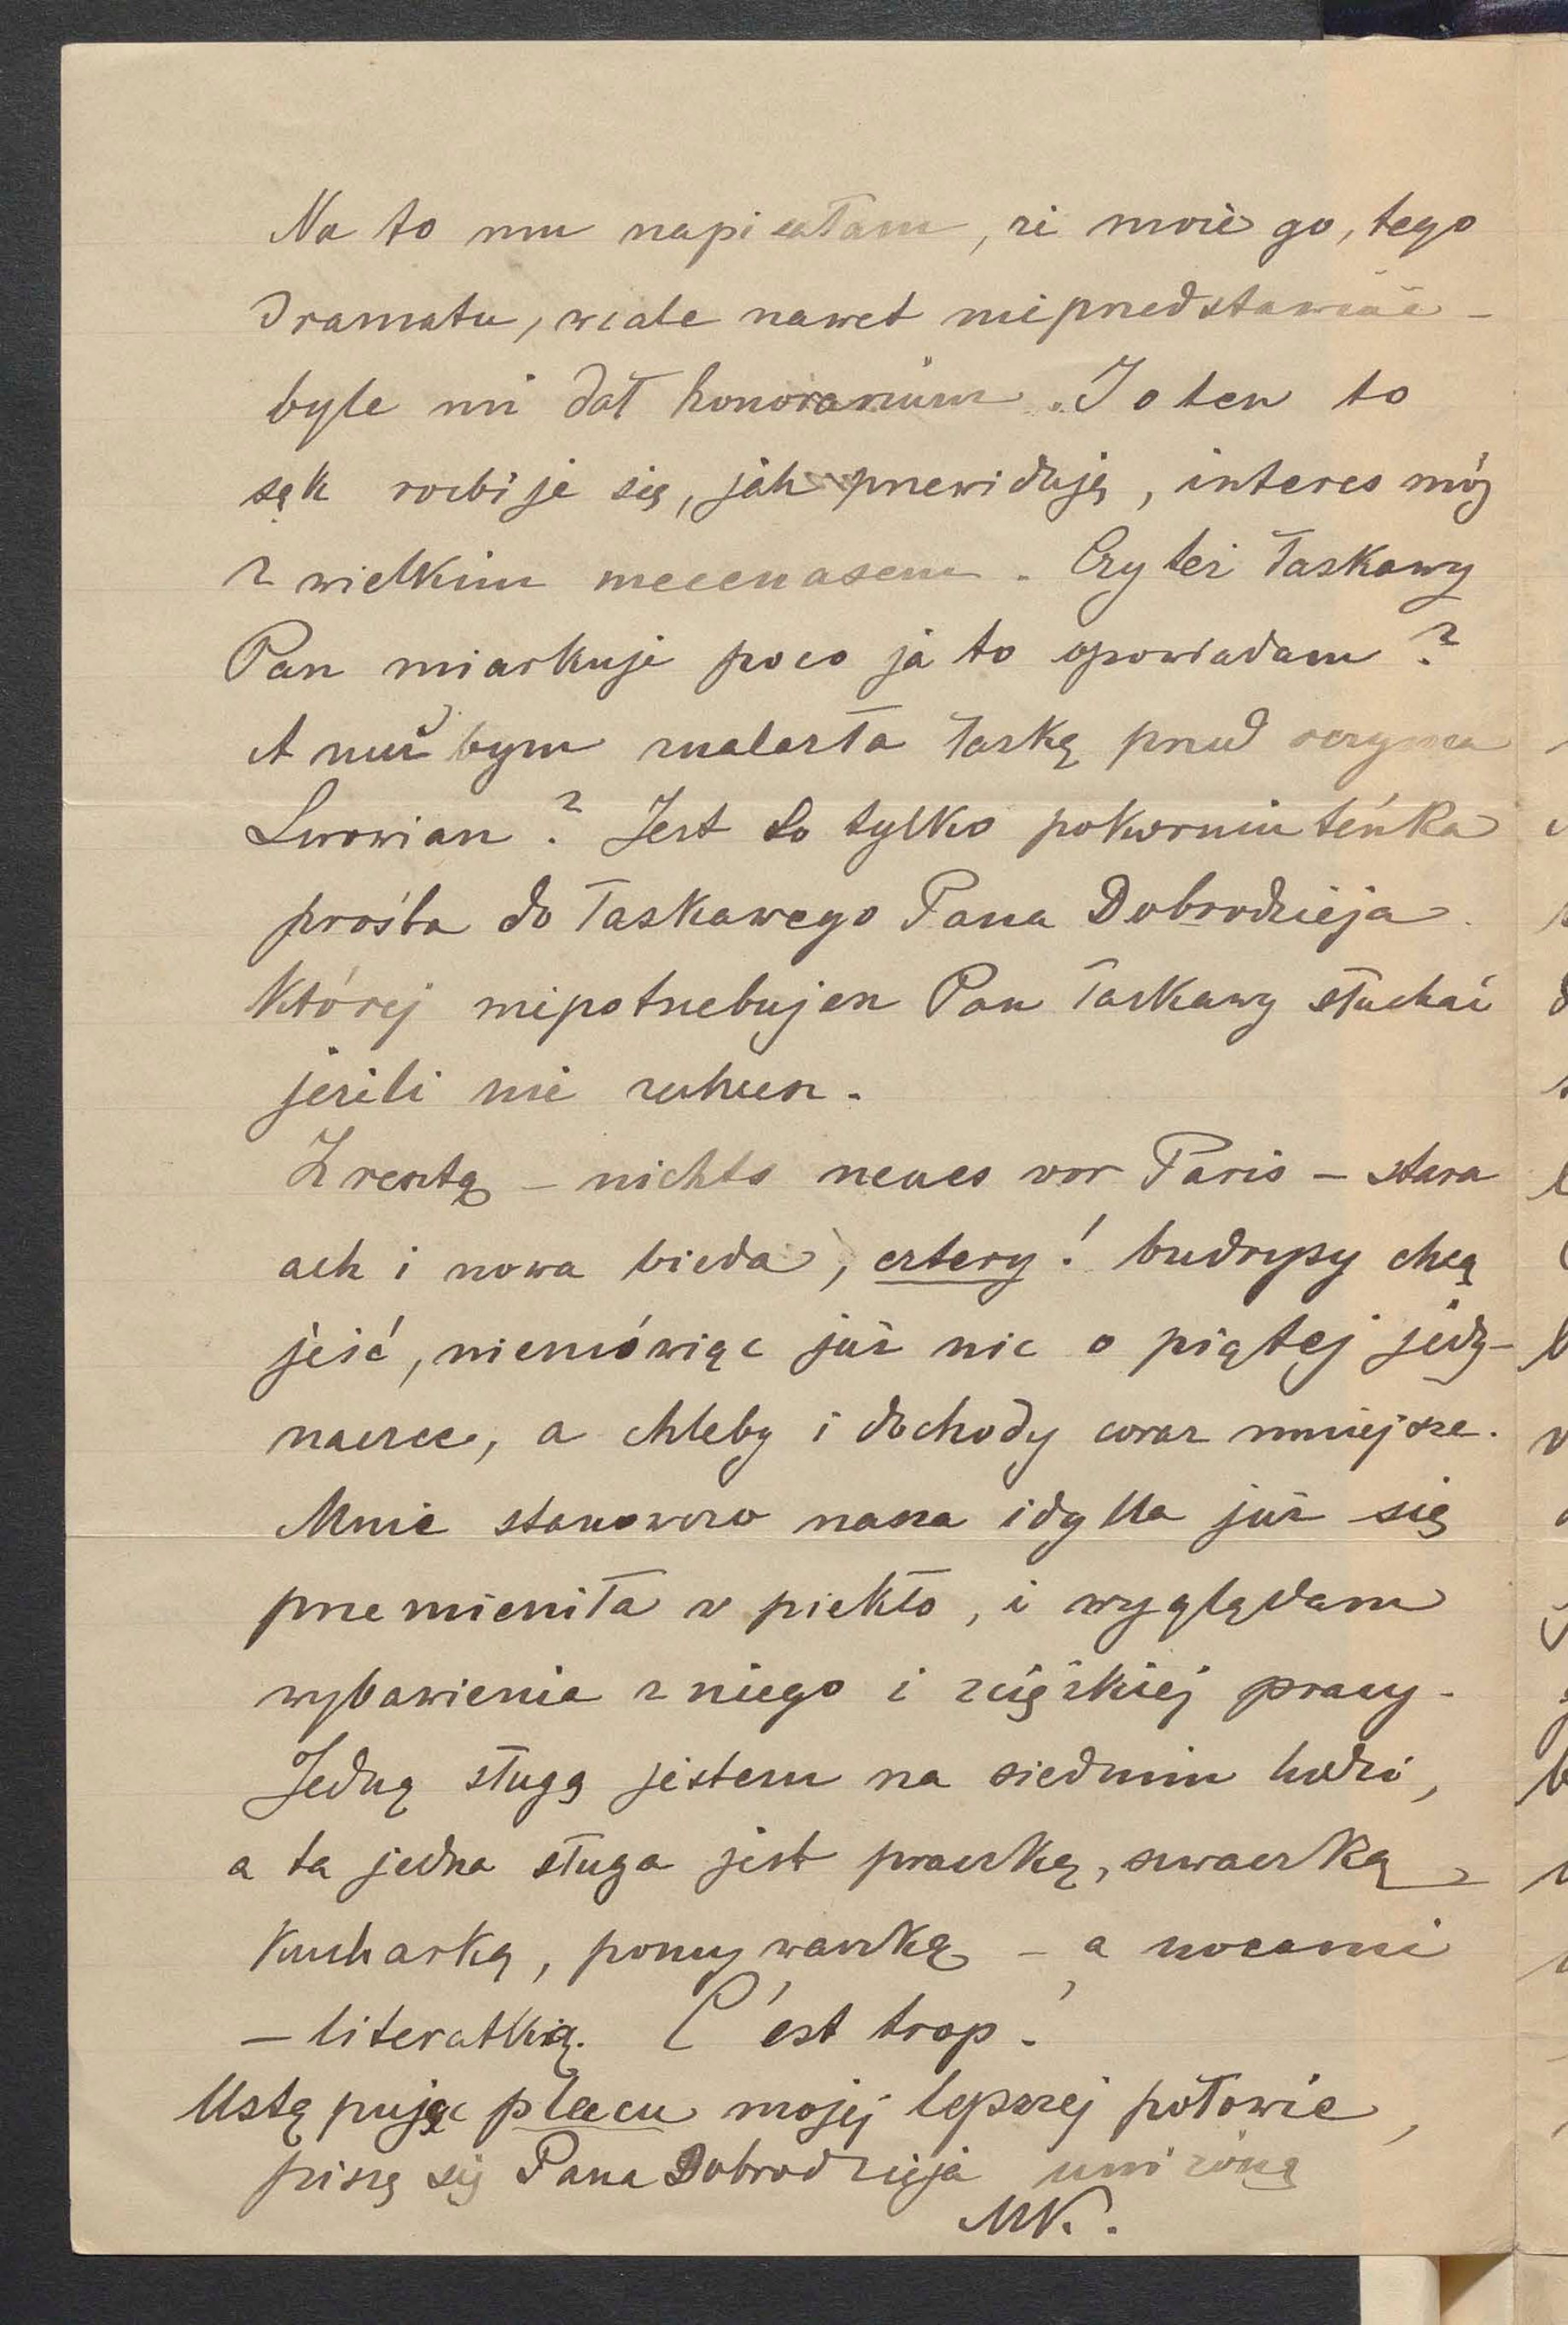 Na to mu napisałam, że może go, tego
dramatu, wcale nawet nieprzedstawiać –
byle mi dał honorarium. I o ten to
sęk rozbije się, jak przewiduję, interes mój
z wielkim mecenasem. Czy też łaskawy
Pan miarkuje poco ja to opowiadam?
A nuż bym znalazła łaskę przed oczyma
Lwowian? Jest to tylko pokorniuteńka
prośba do łaskawego Pana Dobrodzieja.
Której niepotrzebujesz Pan łaskawy słuchać
jeżeli nie zechcesz.
Zresztą – nichts neues vor Paris – stara
ach i nowa bieda, cztery! budrysy chcą
jeść, niemówiąc już nic o piątej jedy-
naczce, a chleby i dochody coraz mniejsze.
Mnie stanowczo nasza idylla już się
przemieniła w piekło, i wyglądam
wybawienia z niego i z ciężkiej pracy.
Jedną sługą jestem na siedmiu ludzi,
a ta jedna sługa jest praczką, szwaczką,
kucharką, pomywaczką – a nocami
– literatką. C'est trop!
Ustępując placu mojej lepszej połowie,
piszę się Pana Dobrodzieja uniżoną